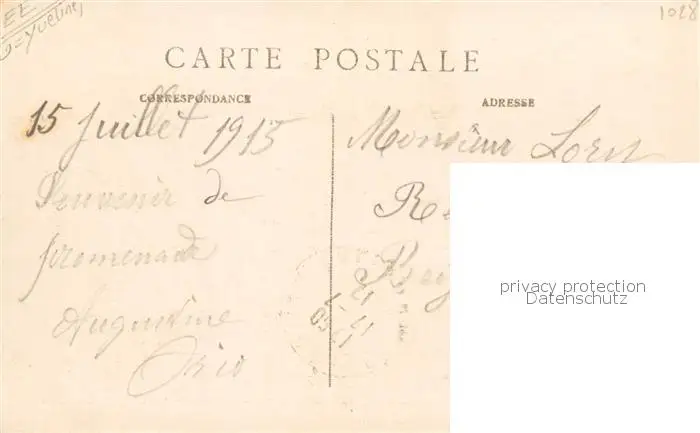 (=Yvelines)
1028
CARTE POSTALE
CORRESPONDANCE
ADRESSE
15 Juillet 1915
Souvenir de
promenade
Augustine
Monsieur
privacy protection
Datenschutz